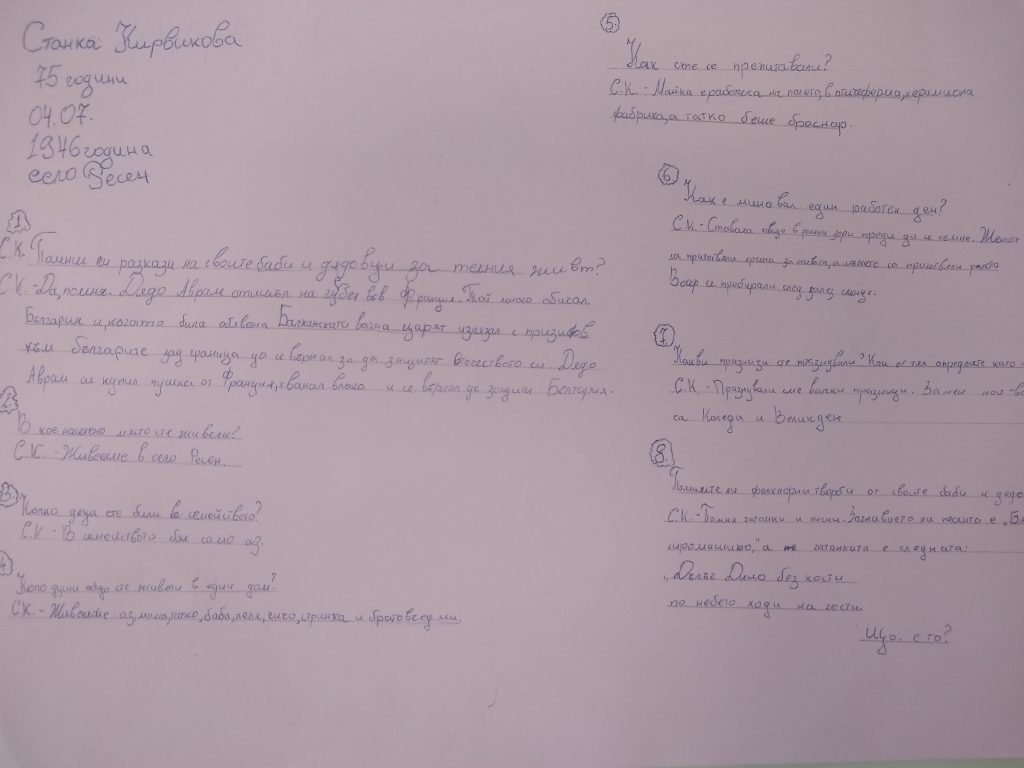 Станка Кирвикова
75 години
04.07.
1946 година
село Ресен
1
С.К. Помниш ли разкази на своите баби и дядовци за техния живт?
С.К.-Да, помня. Дядо Аврам отишъл на гурбет във Франция. Той много обичал
България и, когато била обявена Балканската война царят излязал с призив
към българите зад граница да се върнат за да защитят отечеството си. Дядо
Аврам си купил пушка от Франция, хванал влака и се върнал да защити България.
2
В кое населено място сте живели?
С.К. - Живеехме в село Ресен.
3
Колко деца сте били во семейството?
С.К - В семейството бях само аз.
4
Колко души общо сте живели в един дом?
С.К.- Живеехме: аз, мама, татко, баба, леля, чичо, стринка и братовчед ми.
5
Как сте се препитавали?
С.К. - Майка е работила на полето, в птицеферма, керамична
фабрика, а татко беше бръснар.
6
Как е минавал един работен ден?
С.К.- Ставаха още в ранни зори преди да се съмне. Жените
са приготвяли храна за нивата, а мъжете са приготвяли ралото
Вечер се прибирали след залез слънце.
7
Какви празници сте празнували? Кои от тях определяте като
С.К. - Празнували сме всички празници. За мен най-
са Коледа и Великден
8
Помните ли фолклорни творби от своите баби и дядо
С.К.-Помня гатанки и песни. Заглавието на песента е „
сиромашио," а гатанката е следната:
„Дълъг Дило без кости
по небето ходи на гости
Що. е то?